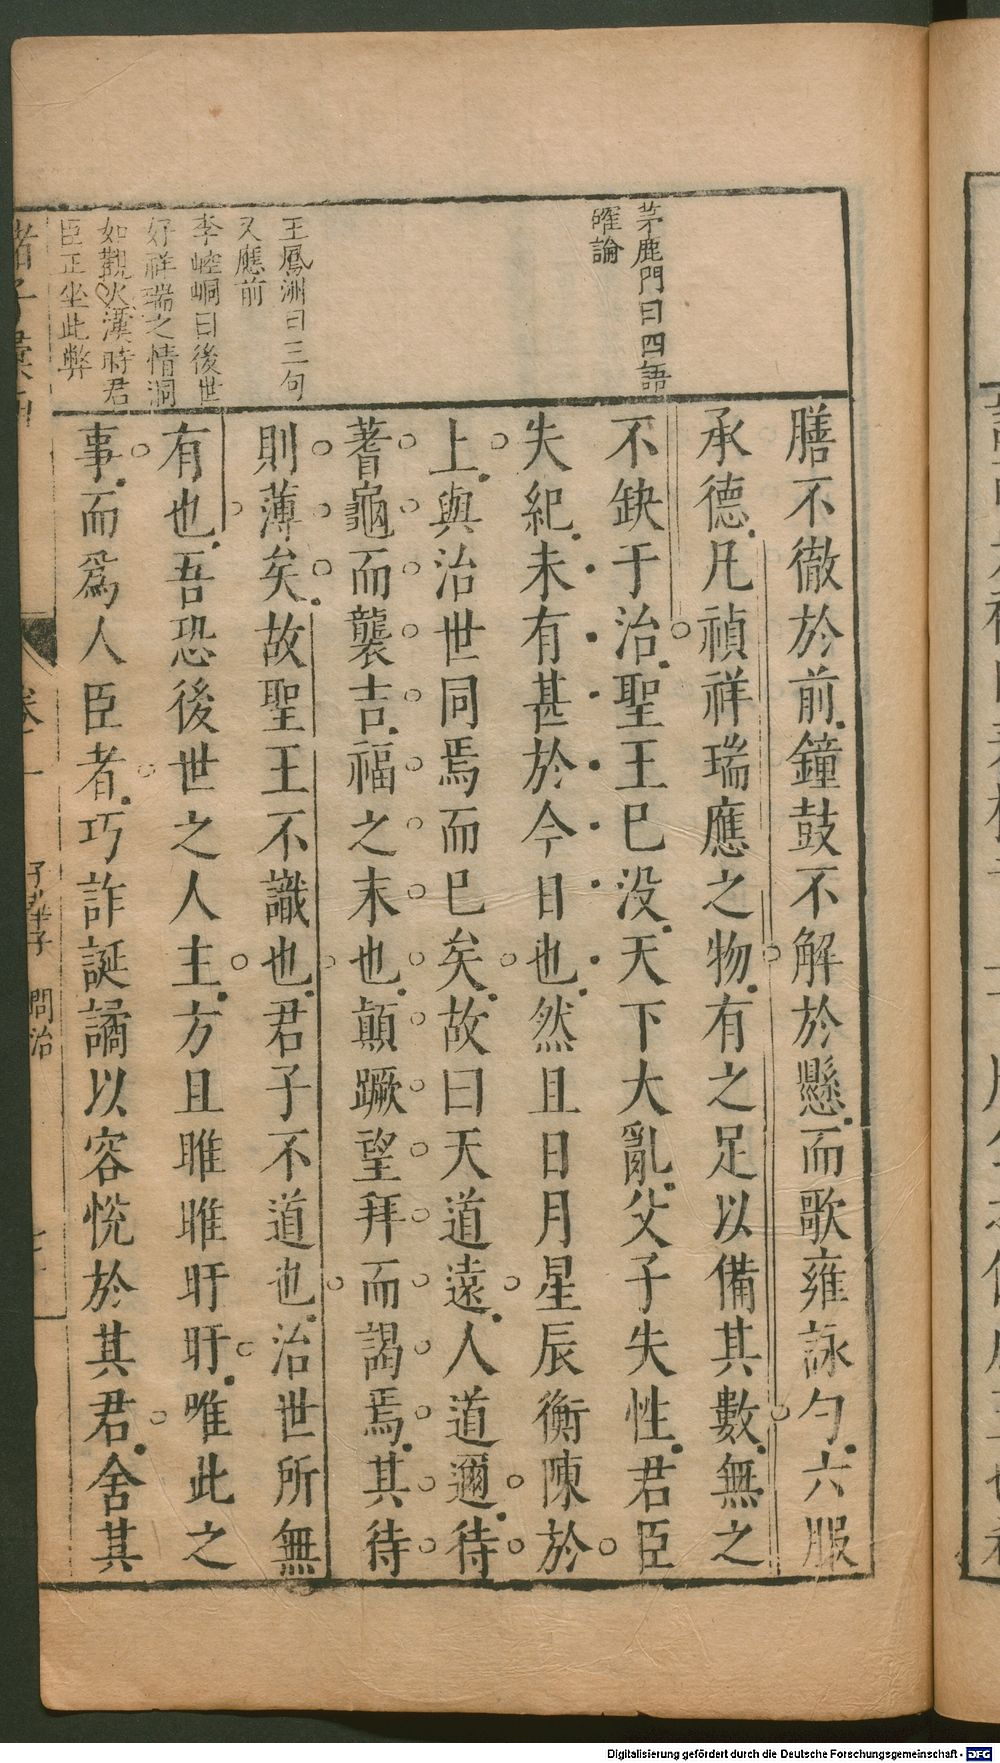 茅鹿門曰四語
確論
王鳳洲曰三句
又應前
李崆峒曰後世
好祥瑞之情洞
如觀火漢時君
臣正坐此弊
膳不徹於前鐘鼓不解於懸而歌雍詠勺六服
承德凡禎祥瑞應之物有之足以備其數無之
不缺于治聖王已没天下大亂父子失性君臣
失紀未有甚於今日也然且日月星辰衡陳於
上與治世同焉而已矣故曰天道遠人道邇待
蓍龜而襲吉福之末也顛蹶望拜而謁焉其待
則薄矣故聖王不識也君子不道也治世所無
有也吾恐後世之人主方且睢睢盱盱唯此之
事而爲人臣者巧詐誕譎以容悅於其君舍其
子華子 問治
Digitalisierung gefördert durch die Deutsche Forschungsgemeinschaft - DFG